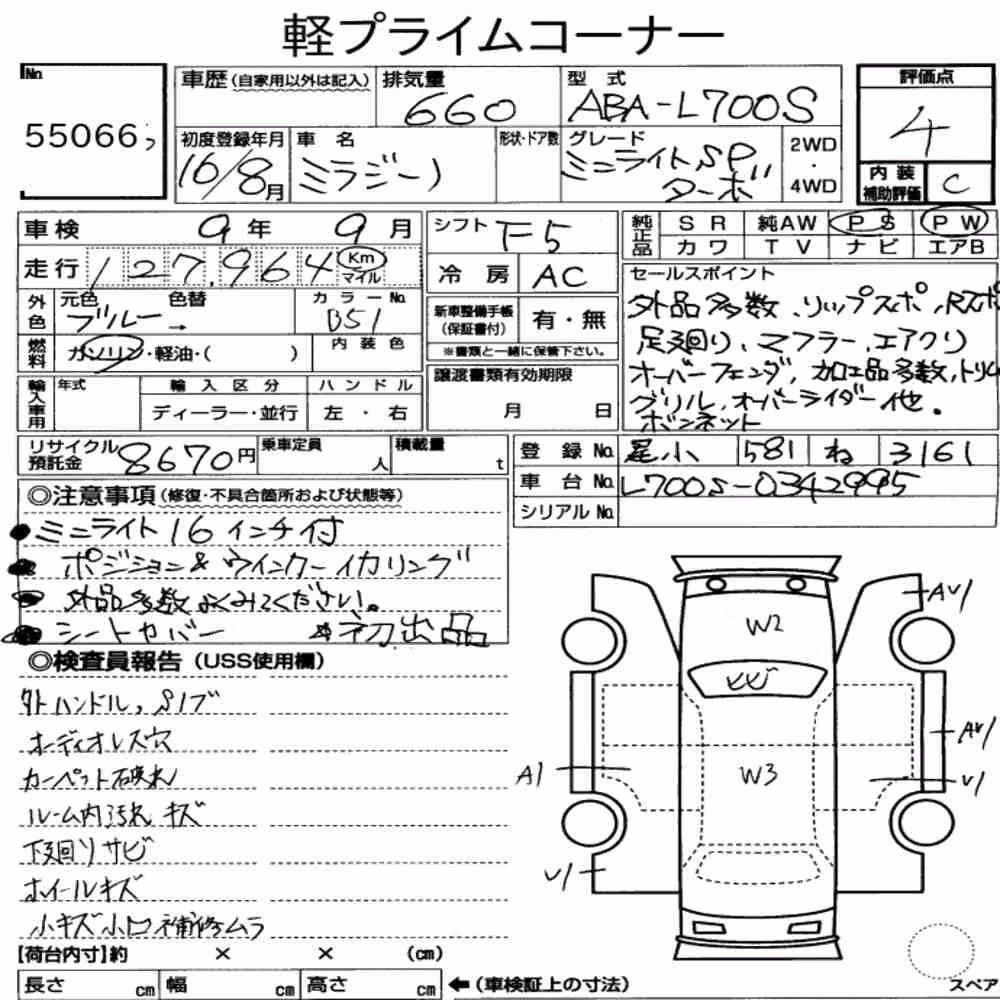 軽プライムコーナー
No.
55066
車歴 (自家用以外は記入)
排気量
660
型 式
ABA-L700S
評価点
4
初度登録年月
16/8月
車 名
ミラジーノ
形状・ドア数
グレード
ミニライトSP
ターボ
2WD
・
4WD
内 装
補助評価
C
車検 9年 9月
シフト F5
純正品
SR 純AW PS PW
カワ TV ナビ エアB
走行 127,964 Km
マイル
冷 房 AC
セールスポイント
外品多数、リップスポ、Rスポ
足廻り、マフラー、エアクリ
オーバーフェンダ、加工品多数、トリム
グリル、オーバーライダー他.
ボンネット
外色
元色 色替
ブルー→
カラーNo.
B51
新車整備手帳
(保証書付)
有・無
※書類と一緒に保管下さい。
燃料
ガソリン・軽油・( )
内 装 色
輸入車用
年式
輸 入 区 分
ディーラー・並行
ハ ン ド ル
左 ・ 右
譲渡書類有効期限
月 日
リサイクル
預託金
8670円
乗車定員
人
積載量
t
登 録 No. 尾小 581 ね 3161
車 台 No. L700S-0342995
シリアル No.
◎注意事項 (修復・不具合箇所および状態等)
●ミニライト16インチ付
●ポジション&ウインカーイカリング
●外品多数よくみてください。
●シートカバー ☆初出品
◎検査員報告 (USS使用欄)
外ハンドル,Sノブ
オーディオレス穴
カーペット破れ
ルーム内汚れ キズ
下廻りサビ
ホイールキズ
小キズ小凹補修ムラ
W2
ヒビ
W3
AU1
AU1
A1
U1
U1
【荷台内寸】約 × × (cm)
長さ cm 幅 cm 高さ cm
←(車検証上の寸法)
スペア